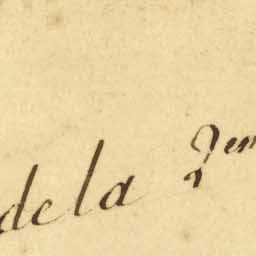 de la 2em